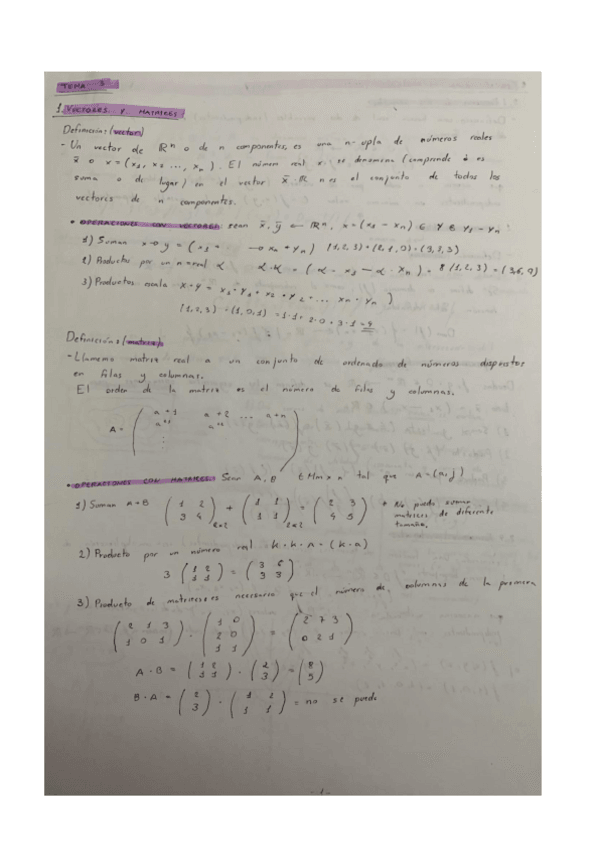 TEMA 3
1. VECTORES Y MATRICES
Definición: (vectores)
- Un vector de ℝⁿ o de n componentes, es una n-upla de números reales
x̄ o x = (x₁, x₂ ..., xₙ). El número real xᵢ se denomina (comprende
o de lugar) en el vector x̄. ℝⁿ es el conjunto de todos los
vectores de n componentes.
• OPERACIONES CON VECTORES sean x̄, ȳ ∈ ℝⁿ, x = (x₁ - xₙ) y₁ - yₙ:
1) Suman (1,2,3) + (2,1,0) = (3,3,3)
2) Producto por un nº real α (1,2,3) =
3) Productos escala x · y =
(1,2,3) · (1,0,1) = 1·1 + 2·0 + 3·1 = 4
Definición: (matrices)
- Llamamo matriz real a un conjunto de ordenado de números
en filas y columnas.
El orden de la matriz es el número de filas y columnas.
A =
• OPERACIONES CON MATRICES. Sean A, B ∈ Mm x n tal que A = (aᵢⱼ)
1) Suman A+B (1 2 / 3 4)₂ₓ₂ + (1 1 / 1 1)₂ₓ₂ = (2 3 / 4 5) * No puedo sumar
matrices de diferente
tamaño.
2) Producto por un número real
3 (1 2 / 1 1) = (3 6 / 3 3)
3) Producto de matrices es necesario que el número de columnas de la primera
(2 1 3 / 1 0 1) · (1 0 / 2 0 / 1 1) = (2 7 3 / 0 2 1)
A · B = (1 2 / 1 1) · (2 / 3) = (8 / 5)
B · A = (2 / 3) · (1 2 / 1 1) = no se puede
- 1 -